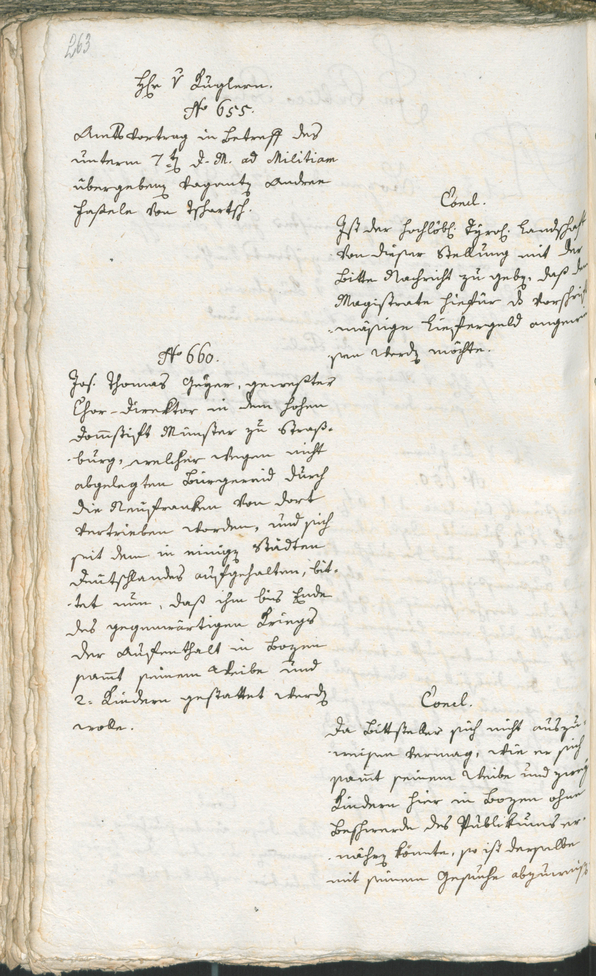 263
Hr. v Kuglern.
No 655.
Amtsvortrag in betreff des
unterm 7ten d. M. ad Militiam
übergeben Vagant Andree
Hasele von Tschartsch.
Concl.
Ist der hochlöbl. Tyrol. Landschaft
von dieser Stellung mit der
Bitte Nachricht zu geben, daß dem
Magistrate hiefür das Vorschrift
-mäßige Liefergeld angewie
sen werden möchte.
No 660.
Jos. Thomas Geyer, gewester
Chor-Direktor in dem hohen
Domstift Münster zu Straß-
burg, welcher wegen nicht
abgelegten Bürgereid durch
die Neufranken von dort
vertrieben worden, und sich
seit dem in einigen Städten
Deutschlandes aufgehalten, bit-
tet nun, daß ihm bis Ende
des gegenwärtigen Kriegs
der Aufenthalt in Bozen
samt seinem Weibe und
2. Kindern gestattet werden
wolle.
Concl.
Da Bittsteller sich nicht auszu-
weisen vermag, wie er sich
samt seinem Weibe und zwey
Kindern hier in Bozen ohne
Beschwerde des Publikums er-
nähren könnte, so ist derselbe
mit seinem Gesuche abzuweis